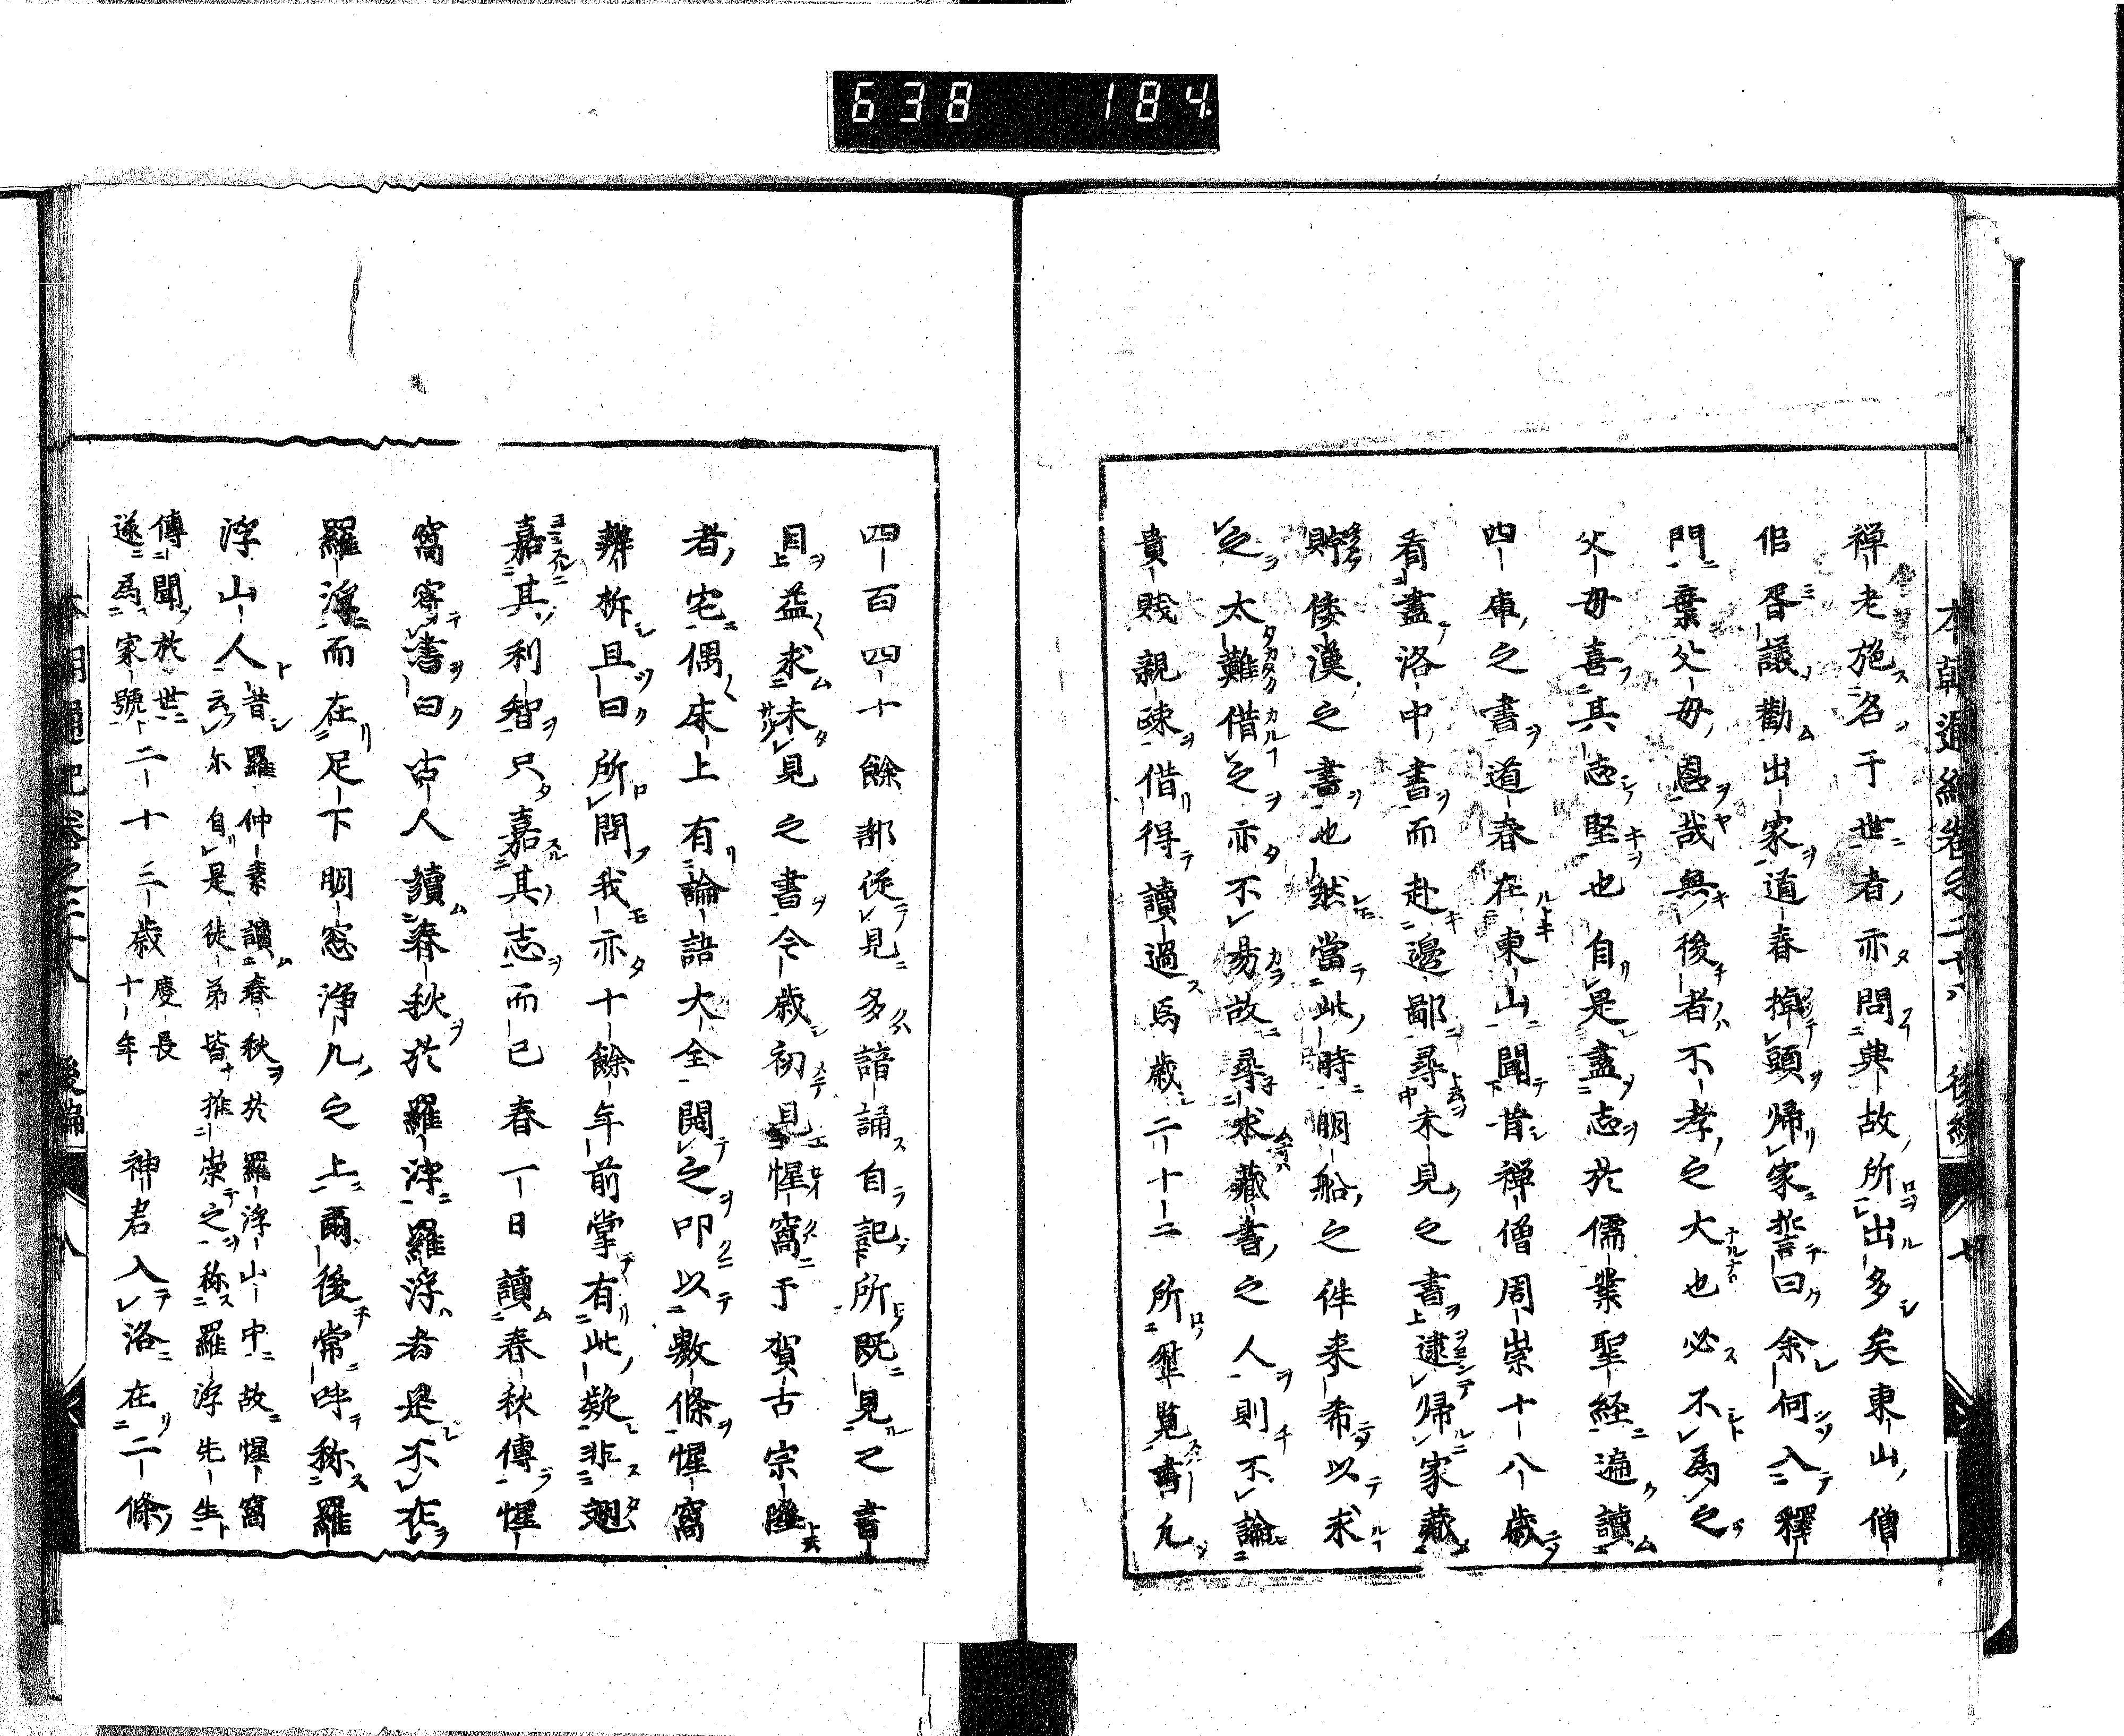 638 184
本朝通紀卷之二十八 後編
禅老施名于世者亦問典故所出多矣東山僧
侶胥議勸出家道春掉頭帰家誓曰余何入釋
門棄父母恩哉無後者不孝之大也必不為之
父母喜其志堅也自是盡志於儒業聖経遍讀
四庫之書道春在東山聞昔禅僧周崇十八歳
看盡洛中書而赴邊鄙尋未見之書逮帰家藏
貯倭漢之書也然當此時明船之伴来希以求
之太難借之亦不易故尋求藏書之人則不論
貴賎親疎借得讀過焉歳二十二所畢覧書凡
四百四十餘部従見多諳誦自記所既見之書
目益求未見之書今歳初見惺窩于賀古宗隆
者宅偶床上有論語大全開之叩以數條惺窩
辨析且曰所問我亦十餘年前掌有此疑非翅
嘉其利智只嘉其志而已春一日讀春秋傳惺
窩寄書曰古人讀春秋於羅浮羅浮者是不在
羅浮而在足下明窓浄几之上爾後常呼称羅
浮山人昔羅仲素讀春秋於羅浮山中故惺窩
云尔自是徒弟皆推崇之称羅浮先生
傳聞於世
遂為家號二十三歳慶長
十年 神君入洛在二條
本朝通紀卷之二十八 後編 八